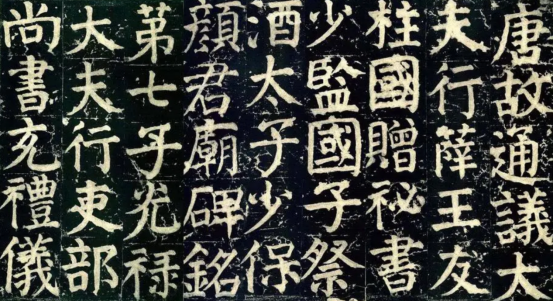 唐故通議大
夫行薛王友
柱國贈祕書
少監國子祭
酒太子少保
顏君廟碑銘
第七子光禄
大夫行吏部
尚書充禮儀